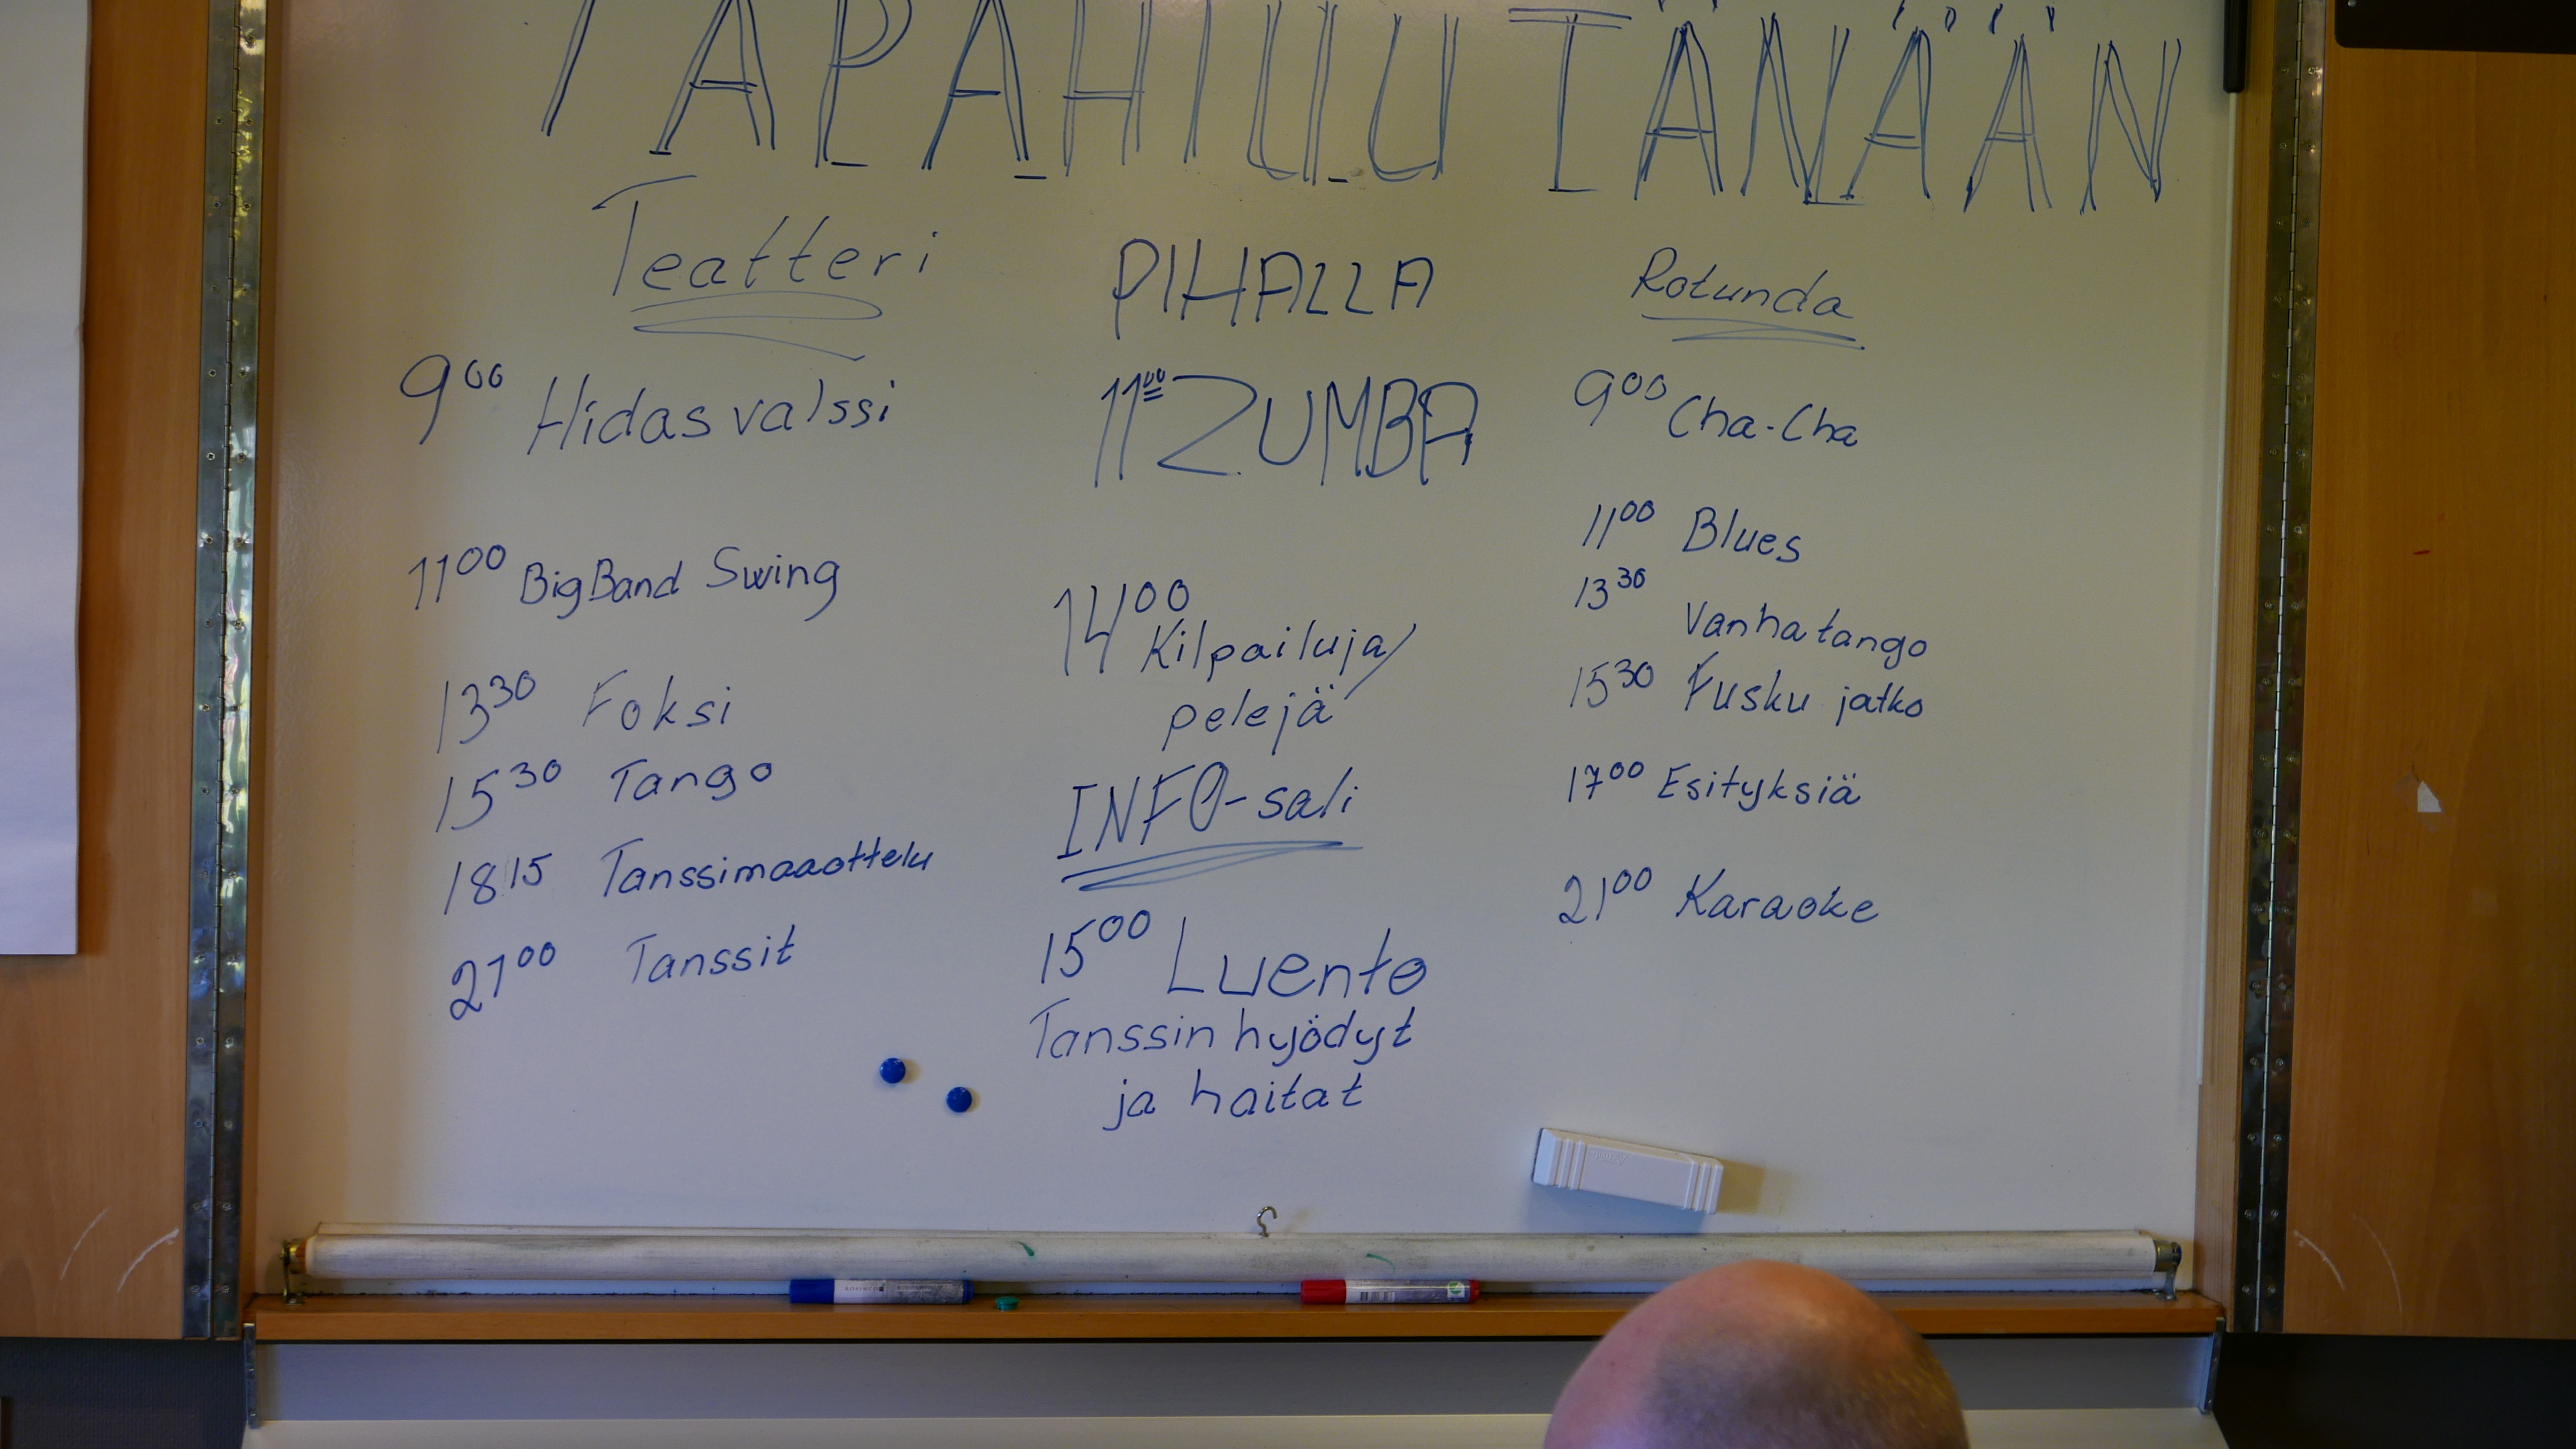 TAPAHTUU TÄNÄÄN
Teatteri
9⁰⁰ Hidas valssi
11⁰⁰ BigBand Swing
13³⁰ Foksi
15³⁰ Tango
18 15 Tanssimaaottelu
21⁰⁰ Tanssit
PIHALLA
11⁰⁰ ZUMBA
14⁰⁰ Kilpailuja/
pelejä
INFO-sali
15⁰⁰ Luento
Tanssin hyödyt
ja haitat
Rotunda
9⁰⁰ Cha-Cha
11⁰⁰ Blues
13³⁰
Vanha tango
15³⁰ Fusku jatko
17⁰⁰ Esityksiä
21⁰⁰ Karaoke